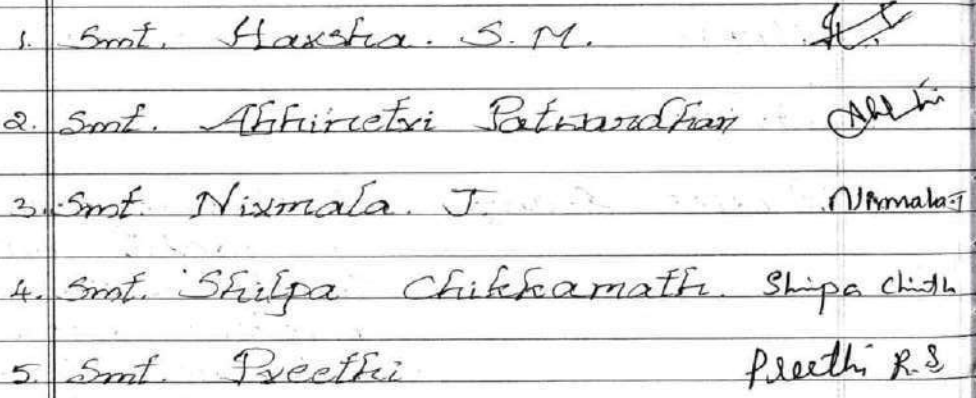 1. Smt. Harsha. S. M.
2. Smt. Abhinetri Patwardhan
3. Smt. Nirmala. J. Nirmala.J
4. Smt. Shilpa Chikkamath. Shipa
5. Smt. Preethi Preethi R.S